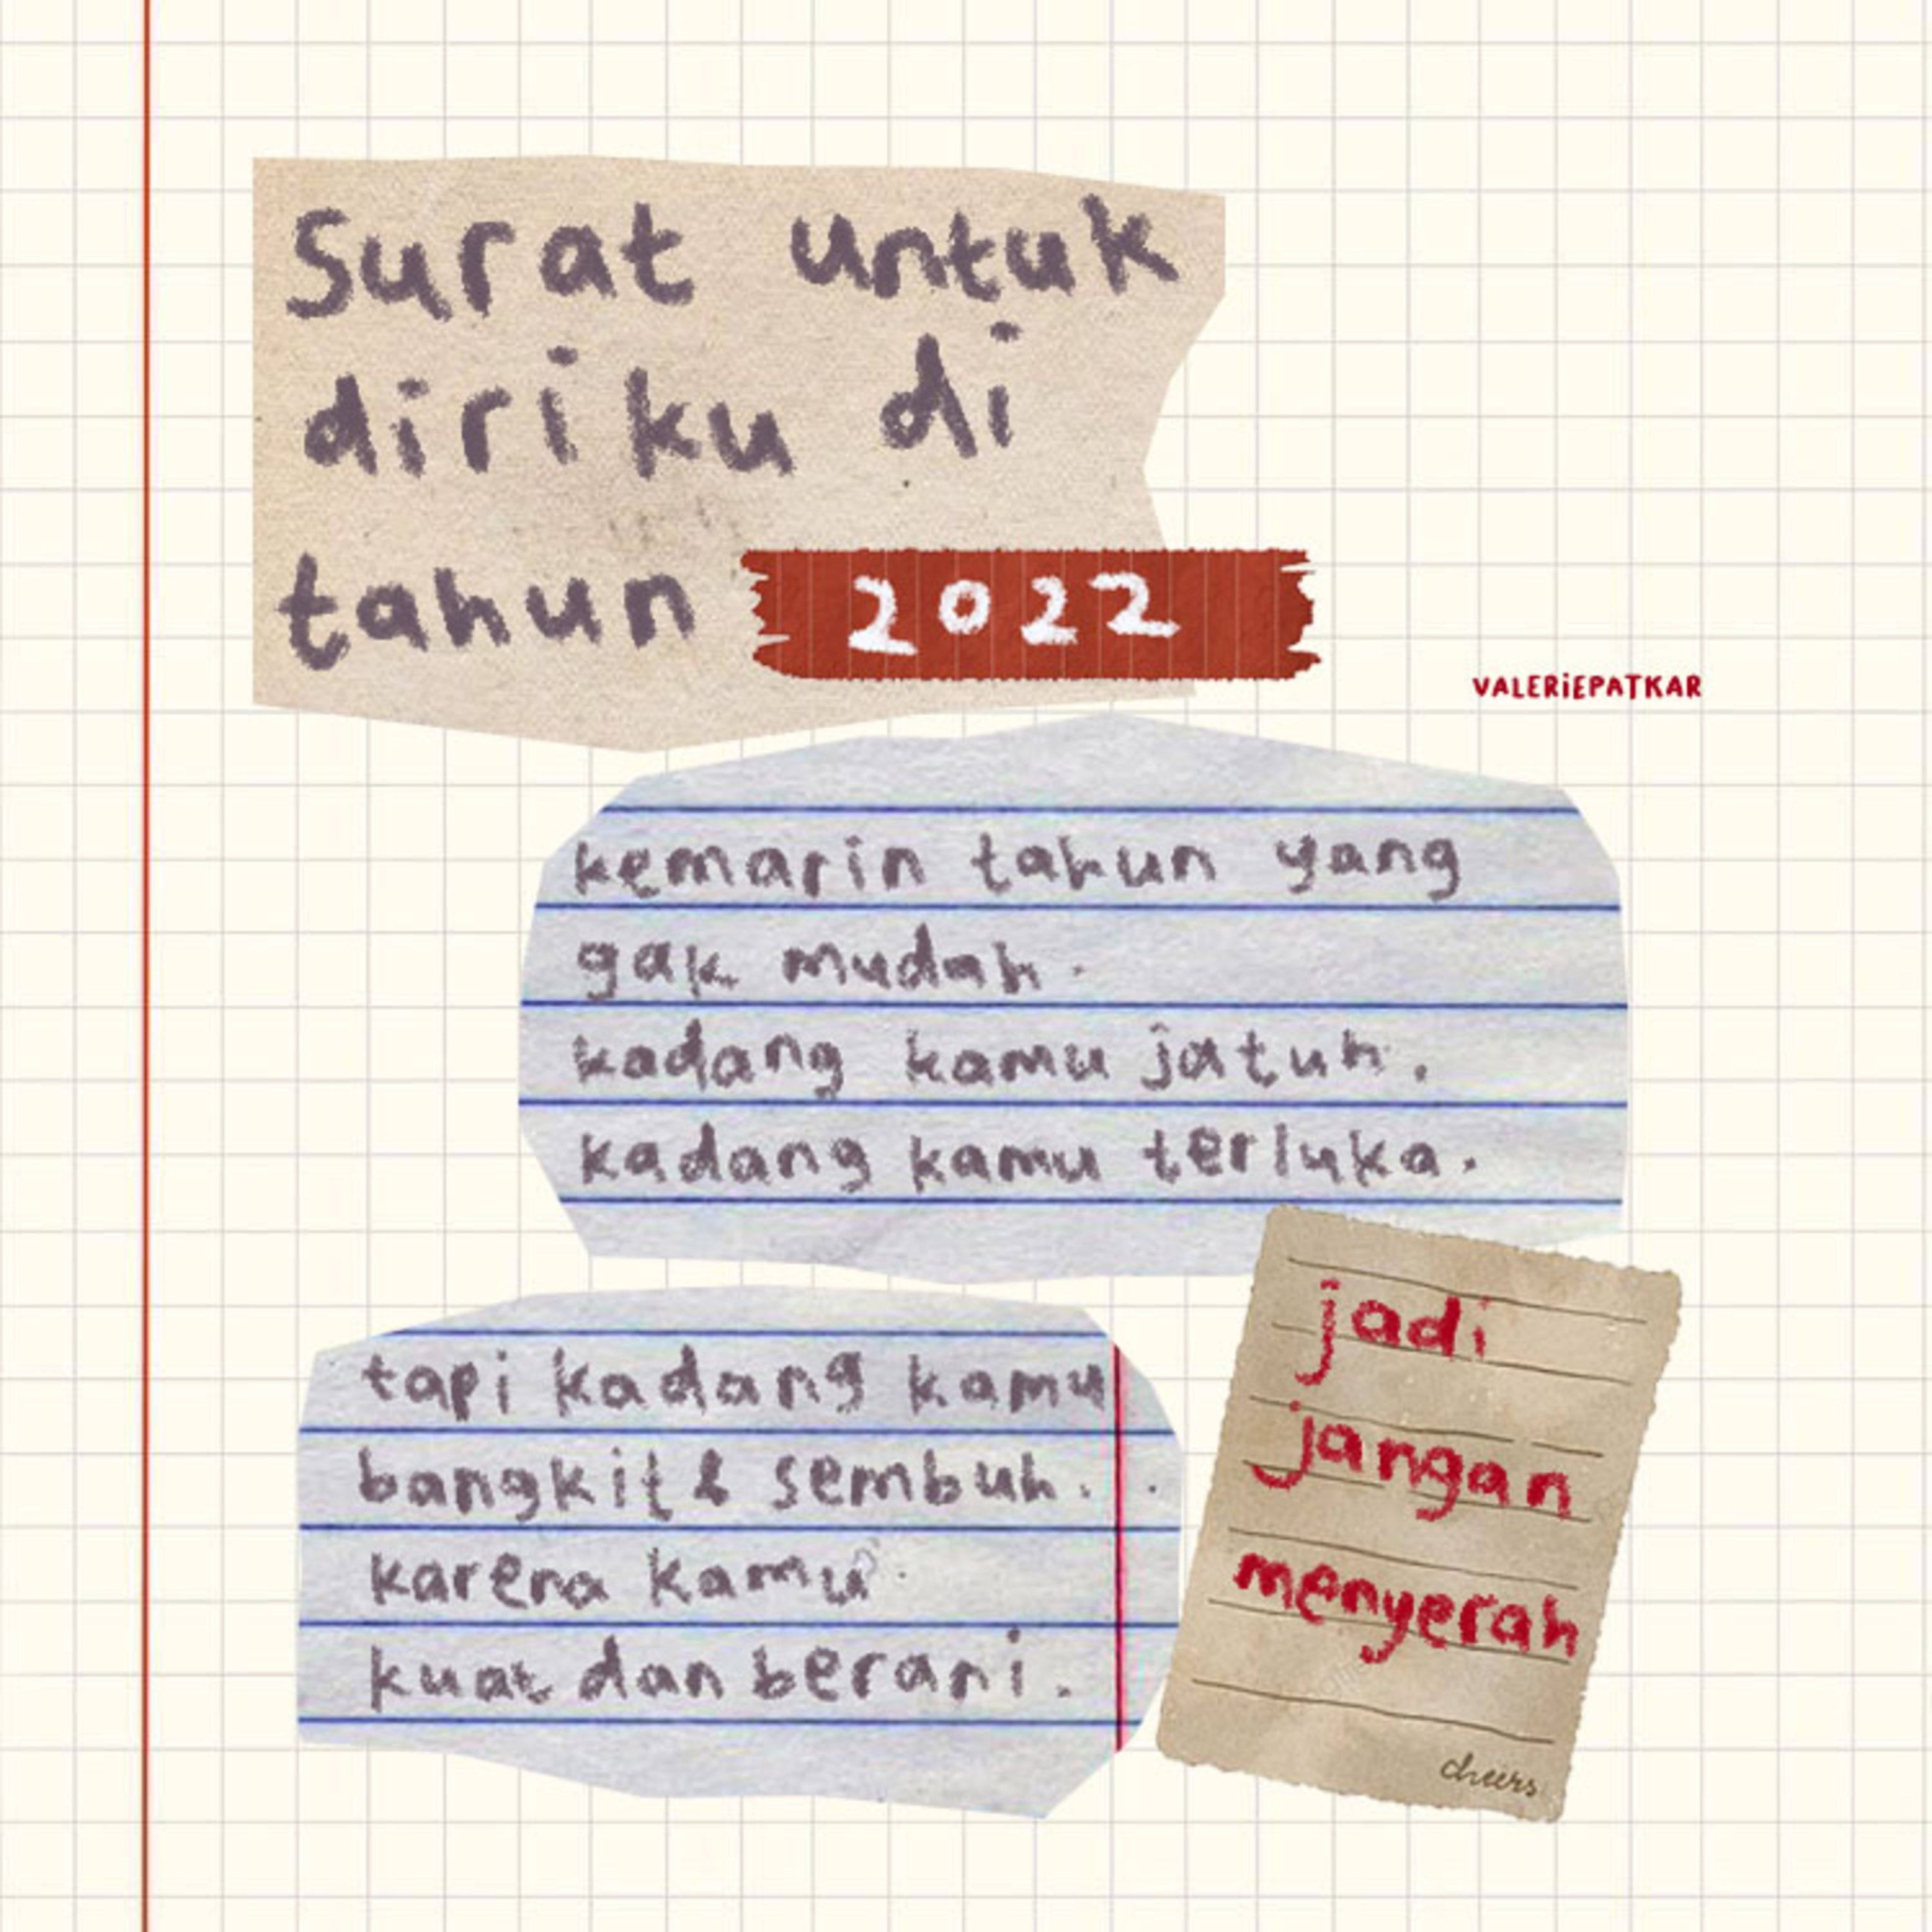 surat untuk
diriku di
tahun 2022
VALERIEPATKAR
kemarin tahun yang
gak mudah.
kadang kamu jatuh.
kadang kamu terluka.
tapi kadang kamu
bangkit & sembuh.
karena kamu
kuat dan berani.
jadi
jangan
menyerah
cheers